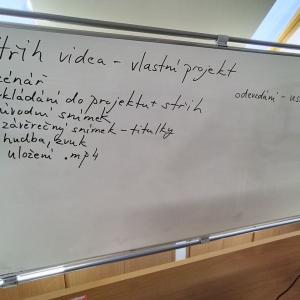 střih videa - vlastní projekt
scénář
vkládání do projektu + střih
úvodní snímek
závěrečný snímek - titulky
hudba, zvuk
uložení .mp4
odevzdání -